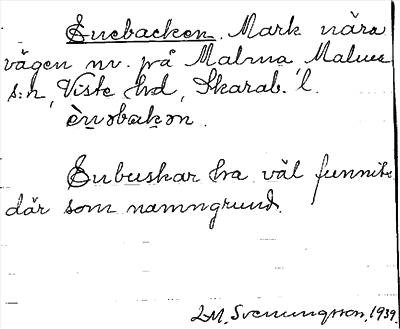 Enebacken. Mark nära
vägen nv. på Malma Malmes
s:n, Viste hd, Skarab. l.
è̀nəbakən.
Enbuskar ha väl funnits
där som namngrund.
L.M. Svenungsson. 1939.